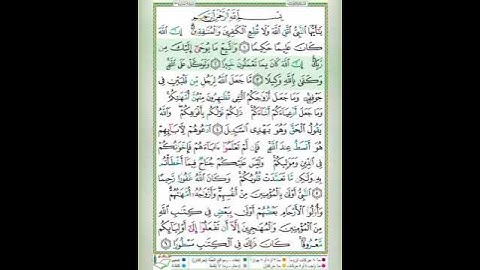 بِسْمِ ٱللَّهِ ٱلرَّحْمَٰنِ ٱلرَّحِيمِ
يَٰٓأَيُّهَا ٱلنَّبِىُّ ٱتَّقِ ٱللَّهَ وَلَا تُطِعِ ٱلْكَٰفِرِينَ وَٱلْمُنَٰفِقِينَ إِنَّ ٱللَّهَ
كَانَ عَلِيمًا حَكِيمًا ١ وَٱتَّبِعْ مَا يُوحَىٰٓ إِلَيْكَ مِن
رَّبِّكَ إِنَّ ٱللَّهَ كَانَ بِمَا تَعْمَلُونَ خَبِيرًا ٢ وَتَوَكَّلْ عَلَى ٱللَّهِ
وَكَفَىٰ بِٱللَّهِ وَكِيلًا ٣ مَّا جَعَلَ ٱللَّهُ لِرَجُلٍ مِّن قَلْبَيْنِ فِى
جَوْفِهِۦ وَمَا جَعَلَ أَزْوَٰجَكُمُ ٱلَّٰٓـِٔى تُظَٰهِرُونَ مِنْهُنَّ أُمَّهَٰتِكُمْ
وَمَا جَعَلَ أَدْعِيَآءَكُمْ أَبْنَآءَكُمْ ذَٰلِكُمْ قَوْلُكُم بِأَفْوَٰهِكُمْ وَٱللَّهُ
يَقُولُ ٱلْحَقَّ وَهُوَ يَهْدِى ٱلسَّبِيلَ ٤ ٱدْعُوهُمْ لِءَابَآئِهِمْ
هُوَ أَقْسَطُ عِندَ ٱللَّهِ فَإِن لَّمْ تَعْلَمُوٓا۟ ءَابَآءَهُمْ فَإِخْوَٰنُكُمْ
فِى ٱلدِّينِ وَمَوَٰلِيكُمْ وَلَيْسَ عَلَيْكُمْ جُنَاحٌ فِيمَآ أَخْطَأْتُم
بِهِۦ وَلَٰكِن مَّا تَعَمَّدَتْ قُلُوبُكُمْ وَكَانَ ٱللَّهُ غَفُورًا رَّحِيمًا
٥ ٱلنَّبِىُّ أَوْلَىٰ بِٱلْمُؤْمِنِينَ مِنْ أَنفُسِهِمْ وَأَزْوَٰجُهُۥٓ أُمَّهَٰتُهُمْ
وَأُو۟لُوا۟ ٱلْأَرْحَامِ بَعْضُهُمْ أَوْلَىٰ بِبَعْضٍ فِى كِتَٰبِ ٱللَّهِ
مِنَ ٱلْمُؤْمِنِينَ وَٱلْمُهَٰجِرِينَ إِلَّآ أَن تَفْعَلُوٓا۟ إِلَىٰٓ أَوْلِيَآئِكُم
مَّعْرُوفًا كَانَ ذَٰلِكَ فِى ٱلْكِتَٰبِ مَسْطُورًا ٦